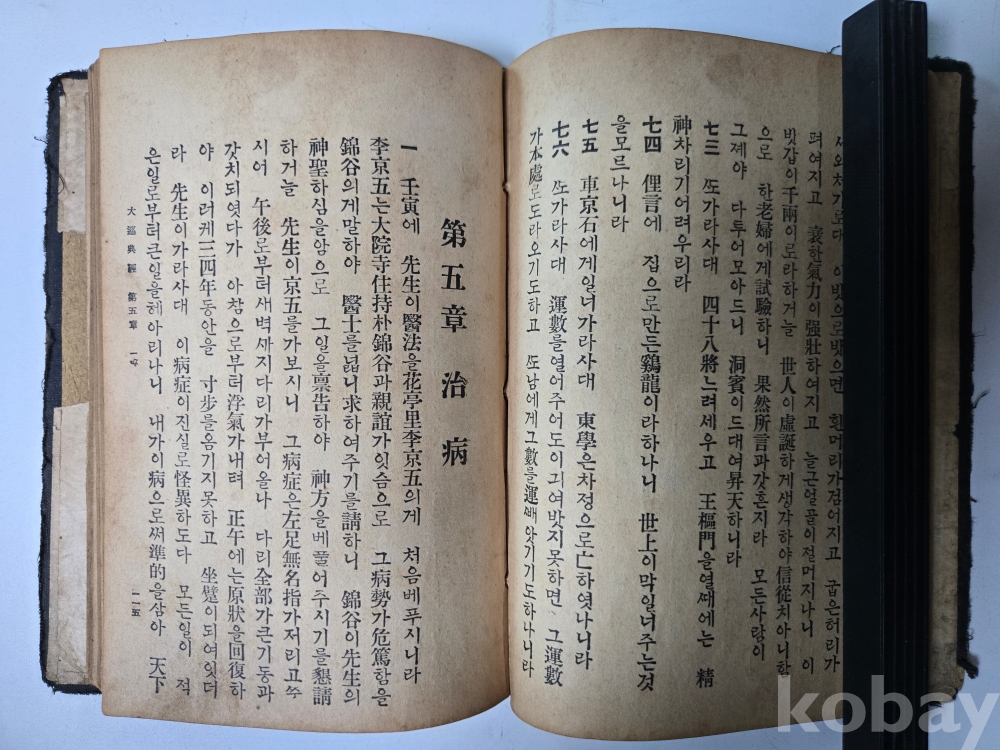 세와처가로대 이빗으로빗으면 흰머리가검어지고 굽은허리가
펴여지고 衰한氣力이强壯하여지고 늘근얼골이절머지나니 이
빗갑이千兩이로라하거늘 世人이虛誕하게생각하야信從치아니함
으로 한老婦에게試驗하니 果然所言과갓흔지라 모든사람이
그제야 다투어모아드니 洞賓이드대여昇天하니라
七三 ᄯᅩ가라사대 四十八將느려세우고 王樞門을열ᄯᅢ에는 精
神차리기어려우리라
七四 俚言에 집으로만든鷄龍이라하나니 世上이막일너주는것
을모르나니라
七五 車京石에게일너가라사대 東學은차정으로亡하엿나니라
七六 ᄯᅩ가라사대 運數를열어주어도이긔여밧지못하면 그運數
가本處로도라오기도하고 ᄯᅩ남에게그數를運ᄲᅢ앗기기도하나니라
第五章 治病
一 壬寅에 先生이醫法을花亭里李京五의게 처음베푸시니라
李京五는大院寺住持朴錦谷과親誼가잇슴으로 그病勢가危篤함을
錦谷의게말하야 醫士를넓니求하여주기를請하니 錦谷이先生의
神聖하심을암으로 그일을禀告하야 神方을베풀어주시기를懇請
하거늘 先生이京五를가보시니 그病症은左足無名指가저리고쑤
시어 午後로부터새벽ᄭᅡ지다리가부어올나 다리全部가큰기동과
갓치되엿다가 아참으로부터浮氣가내려 正午에는原狀을回復하
야 이러케三四年동안을 寸步를옴기지못하고 坐躄이되여잇더
라 先生이가라사대 이病症이진실로怪異하도다 모든일이 적
은일로부터큰일을헤아리나니 내가이病으로써準的을삼아 天下
大巡典經 第五章 一七
一一五
kobay